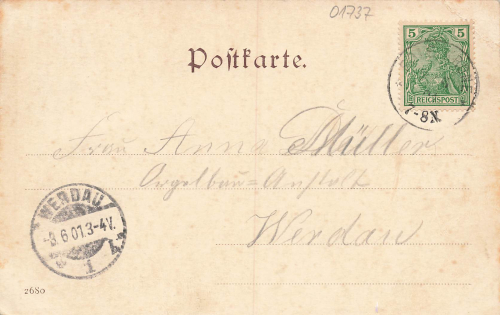 01737
Postkarte.
5 5
REICHSPOST
7-8N.
Frau Anna Müller
Orgelbau=Anstalt
Werdau
WERDAU
-3.6.01.3-4V.
1
2680